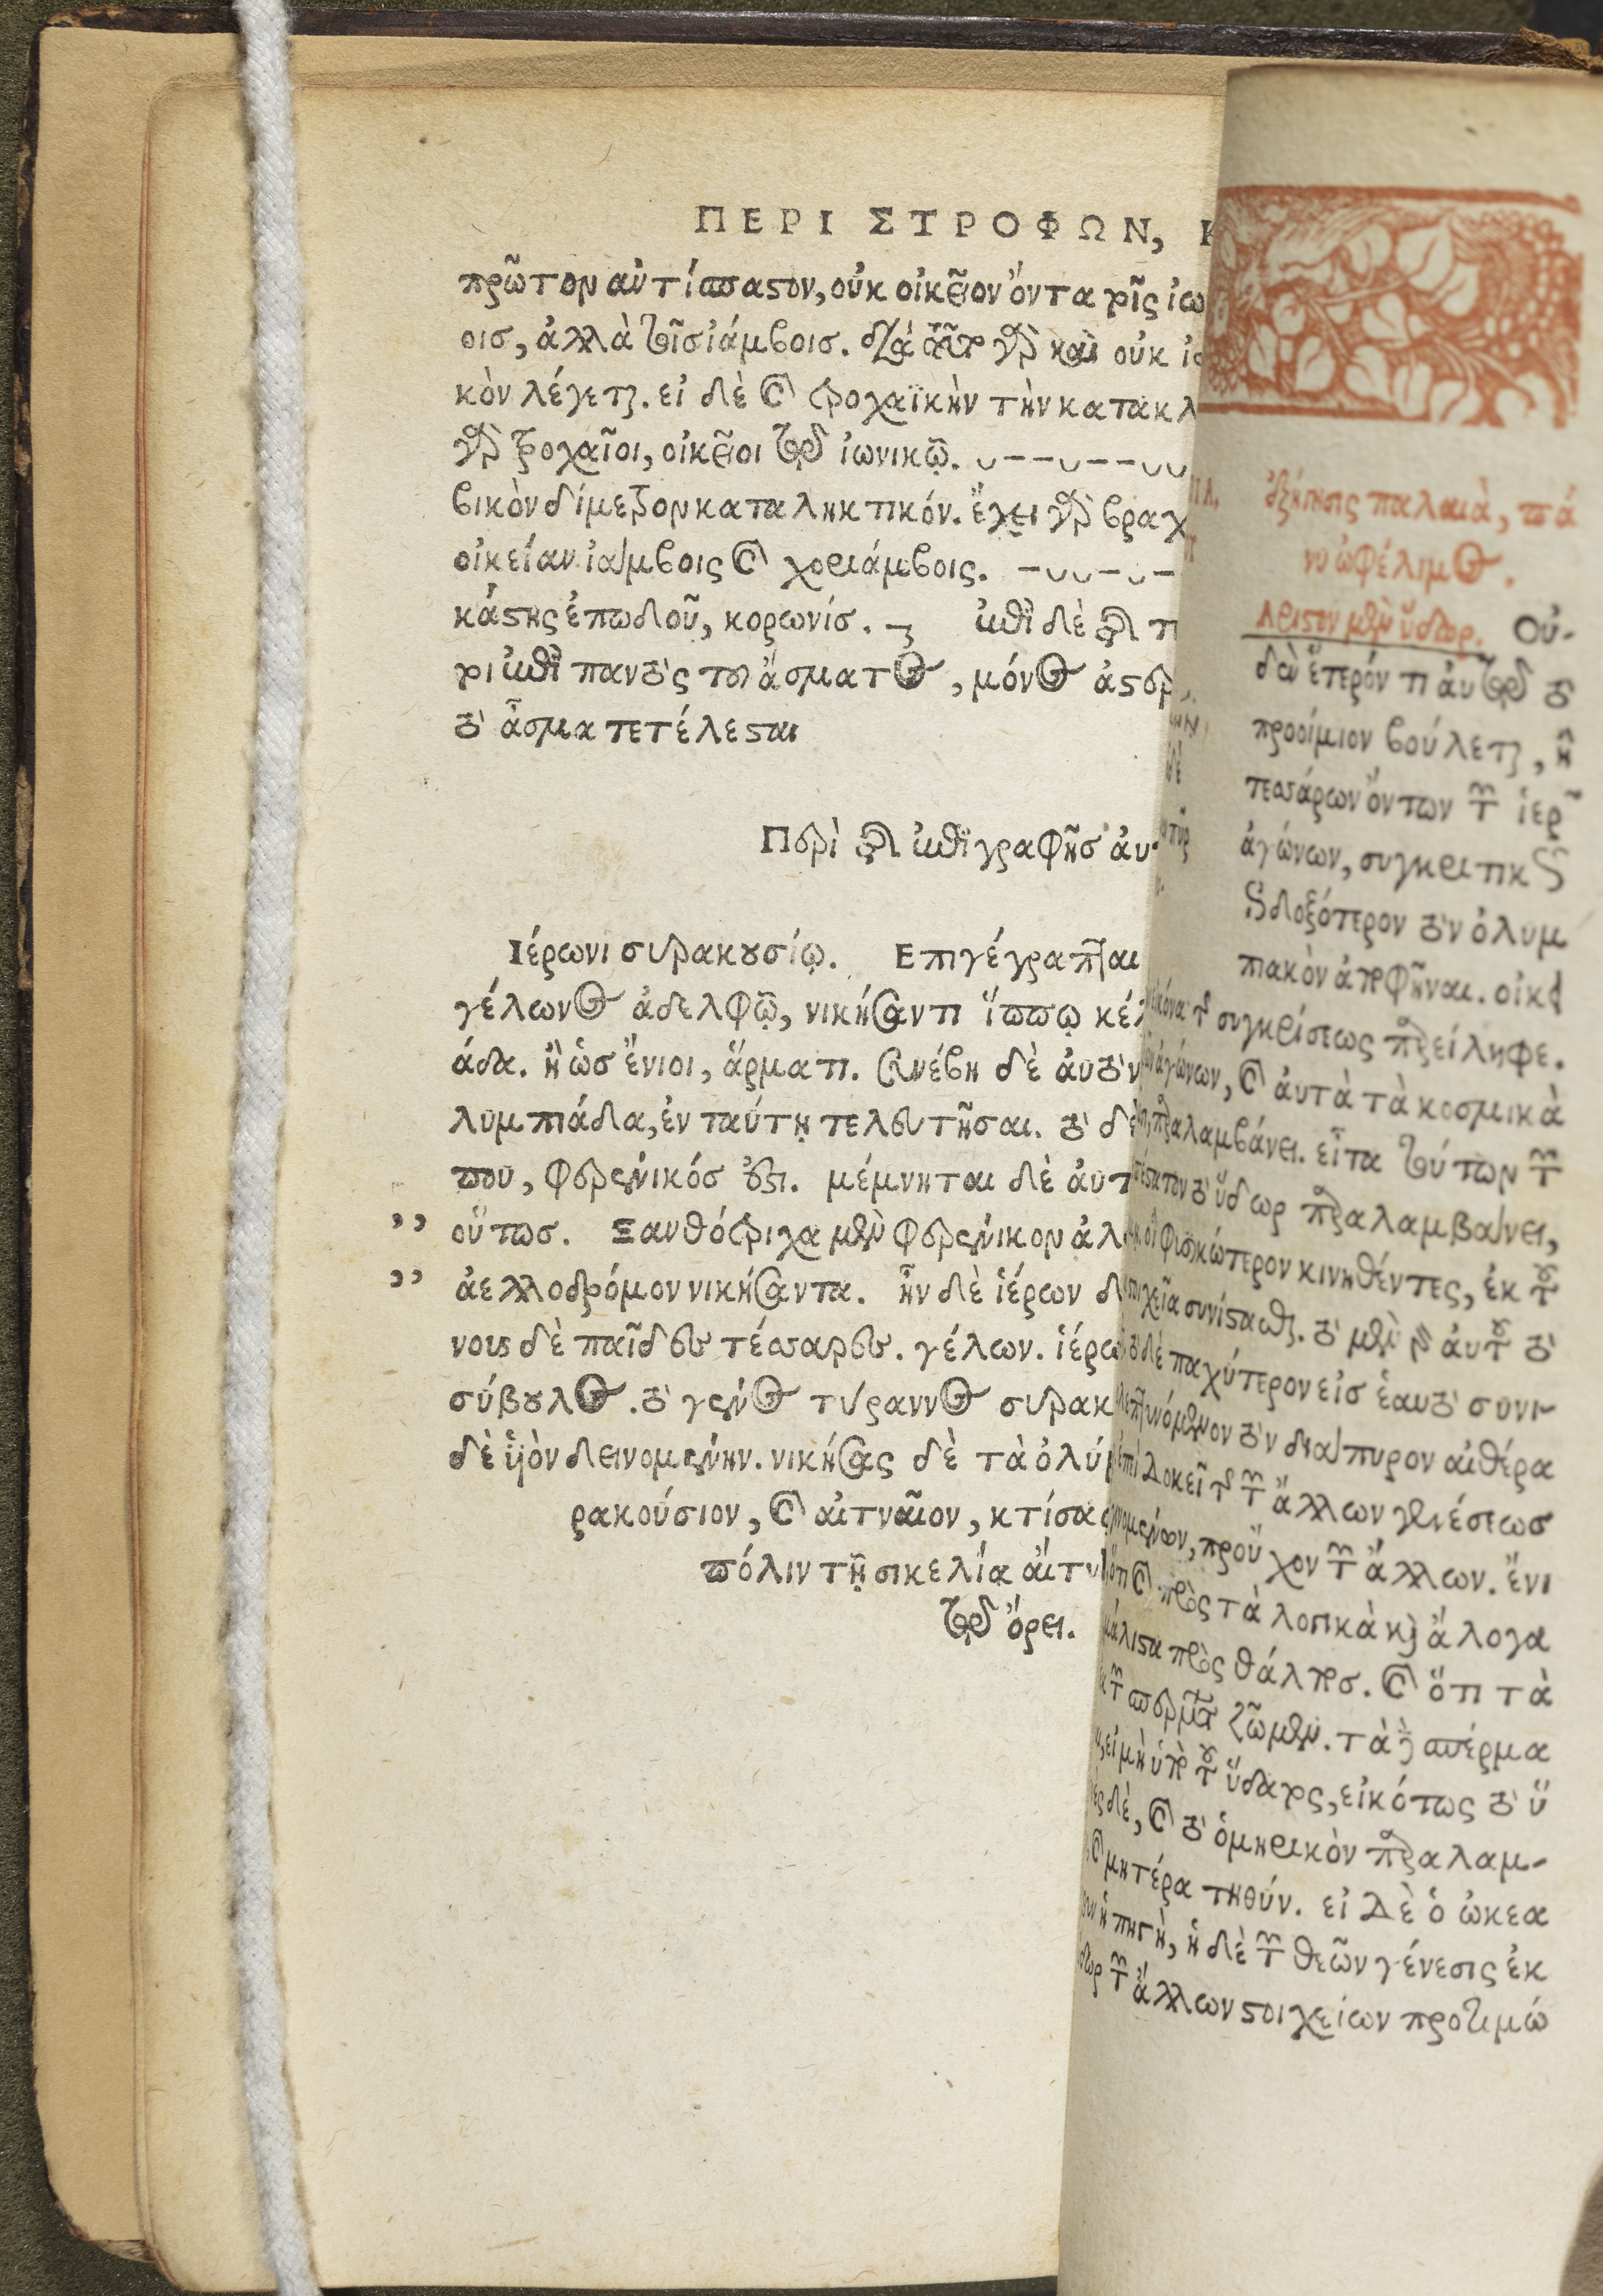 ΠΕΡΙ ΣΤΡΟΦΩΝ,
πρῶτον ἀντίσπαστον, οὐκ οἰκεῖον ὄντα τοῖς ἰω
οις, ἀλλὰ τοῖς ἰάμβοις. διὰ γὰρ καὶ οὐκ
κὸν λέγεται. εἰ δὲ καὶ τροχαϊκὴν τὴν κατακλ
γὰρ τροχαῖοι, οἰκεῖοι τῷ ἰωνικῷ. ᴗ--ᴗ--ᴗᴗ
βικὸν δίμετρον καταληκτικόν. ἔχει γὰρ βραχ
οἰκείαν ἰάμβοις καὶ χοριάμβοις. -ᴗᴗ-ᴗ-
κάστης ἐπωδοῦ, κορωνίς. ἐπὶ δὲ
ρι ἐπὶ παντὸς τοῦ ἄσματος, μόνος
τὸ ἆσμα τετέλεσται
Περὶ τῆς ἐπιγραφῆς αὐ
Ιέρωνι συρακουσίῳ. Επιγέγραπται
γέλωνος ἀδελφῷ, νικήσαντι ἵππῳ κέλ
άδα. ἢ ὡς ἔνιοι, ἅρματι. συνέβη δὲ αὐτὸν
λυμπιάδα, ἐν ταύτῃ τελευτῆσαι. τὸ δὲ
που, φερένικός ἐστι. μέμνηται δὲ αὐτ
,, οὕτως. Ξανθότριχα μὲν φερένικον ἀλ
,, ἀελλοδρόμον νικήσαντα. ἦν δὲ ἱέρων
νους δὲ παῖδες τέσσαρες. γέλων. ἱέρω
σύβουλος. τὸ γένος τύραννος συρακ
δὲ ὑιὸν δεινομένην. νικήσας δὲ τὰ ὀλύμ
ρακούσιον, καὶ αἰτναῖον, κτίσας
πόλιν τῇ σικελίᾳ αἴτν
τῷ ὄρει.
ἐξήγησις παλαιὰ, πά
νυ ὠφέλιμος.
Αριστον μὲν ὕδωρ. Οὐ-
δὲν ἕτερόν τι ἀυτῷ τὸ
προοίμιον βούλεται, ἢ
τεσσάρων ὄντων τῶν ἱερῶν
ἀγώνων, συγκριτικῶς
ἐνδοξότερον τὸν ὀλυμ
πιακὸν ἀποφῆναι. οἰκεί
εἰκόνα τῆς συγκρίσεως παρείληφε.
ἀγώνων, καὶ ἀυτὰ τὰ κοσμικὰ
παραλαμβάνει. εἶτα τούτων τῶν
τὸ ὕδωρ παραλαμβάνει,
οἱ φυσικώτερον κινηθέντες, ἐκ τοῦ
στοιχεῖα συνίστασθαι. τὸ μὲν γὰρ ἀυτοῦ τὸ
τὸ δὲ παχύτερον εἰς ἑαυτὸ συνι-
λεπτυνόμενον τὸν διάπυρον αἰθέρα
ἐπεὶ δοκεῖ τῆς τῶν ἄλλων γενέσεως
προὖχον τῶν ἄλλων. ἔνι
ὅτι καὶ πρὸς τὰ λογικὰ καὶ ἄλογα
μάλιστα πρὸς θάλπος. καὶ ὅτι τὰ
τῶν σπερμάτων ζῶμεν. τὰ δὲ σπέρμα
εἰ μὴ ὑπὸ τοῦ ὕδατος, εἰκότως τὸ ὕ
δὲ, καὶ τὸ ὁμηρικὸν παραλαμ-
καὶ μητέρα τηθύν. εἰ δὲ ὁ ὠκεα
ἡ πηγὴ, ἡ δὲ τῶν θεῶν γένεσις ἐκ
ὕδωρ τῶν ἄλλων στοιχείων προτιμώ